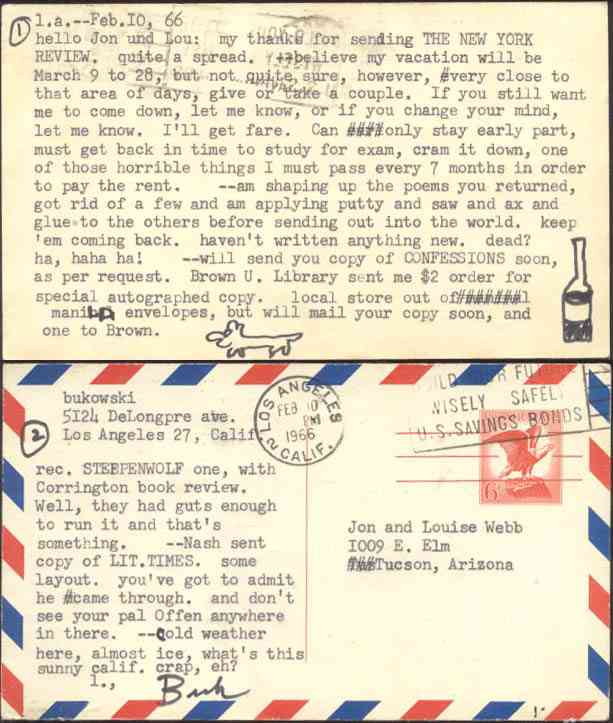 1
l.a.--Feb.IO, 66
hello Jon and Lou: my thanks for sending THE NEW YORK
REVIEW. quite a spread. I believe my vacation will be
March 9 to 28, but not quite sure, however, very close to
that area of days, give or take a couple. If you still want
me to come down, let me know, or if you change your mind,
let me know. I'll get fare. Can #### only stay early part,
must get back in time to study for exam, cram it down, one
of those horrible things I must pass every 7 months in order
to pay the rent. --am shaping up the poems you returned,
got rid of a few and am applying putty and saw and ax and
glue to the others before sending out into the world. keep
'em coming back. haven't written anything new. dead?
ha, haha ha! --will send you copy of CONFESSIONS soon,
as per request. Brown U. Library sent me $2 order for
special autographed copy. local store out of#######l
manila envelopes, but will mail your copy soon, and
one to Brown.
2
bukowski
5I24 DeLongpre ave.
Los Angeles 27, Calif.
LOS ANGELES
FEB 10
PM
1966
2 CALIF.
BUILD YOUR FUTURE
WISELY SAFELY
U.S. SAVINGS BONDS
6¢
rec. STEPPENWOLF one, with
Corrington book review.
Well, they had guts enough
to run it and that's
something. --Nash sent
copy of LIT.TIMES. some
layout. you've got to admit
he #came through. and don't
see your pal Offen anywhere
in there. --cold weather
here, almost ice, what's this
sunny calif. crap, eh?
l.,
Buk
Jon and Louise Webb
I009 E. Elm
###Tucson, Arizona